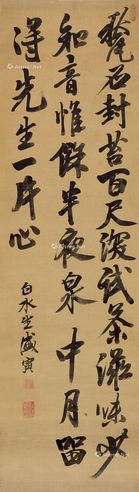 甃石封苔百尺深試茶滋味少
知音惟餘半夜泉中月留
得先生一片心
白水生盛寅